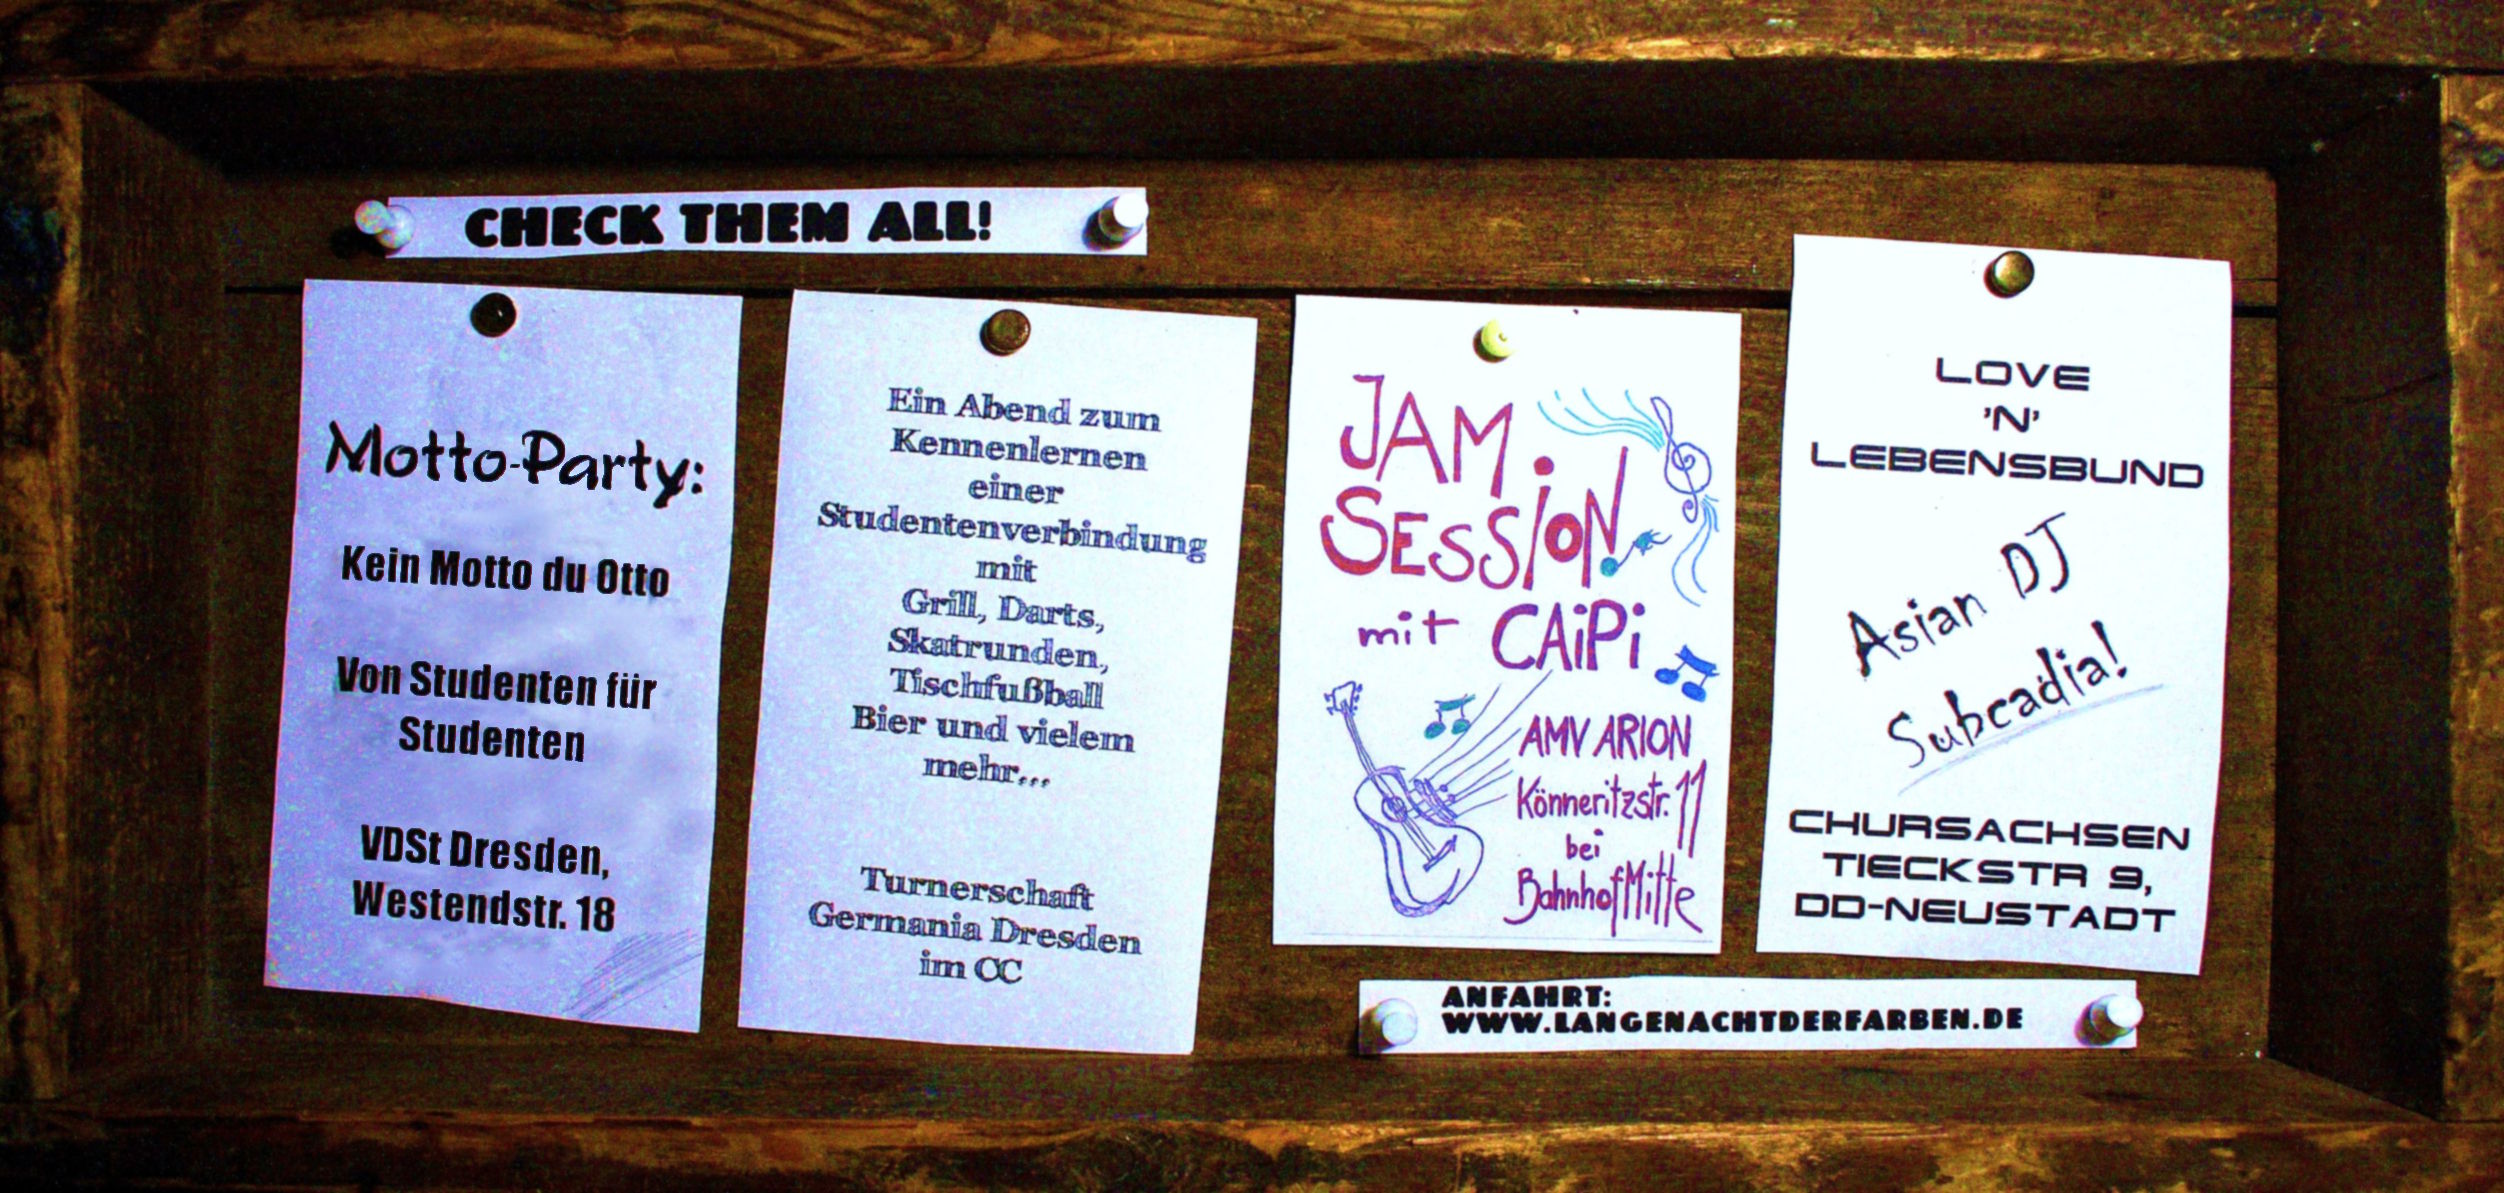 CHECK THEM ALL!
Motto-Party:
Kein Motto du Otto
Von Studenten für
Studenten
VDSt Dresden,
Westendstr. 18
Ein Abend zum
Kennenlernen
einer
Studentenverbindung
mit
Grill, Darts,
Skatrunden,
Tischfußball
Bier und vielem
mehr...
Turnerschaft
Germania Dresden
im CC
JAM
SESSiON
mit CAiPi
AMV ARION
Könneritzstr. 11
bei
Bahnhof Mitte
LOVE
'N'
LEBENSBUND
Asian DJ
Subcadia!
CHURSACHSEN
TIECKSTR 9,
DD-NEUSTADT
ANFAHRT:
WWW.LANGENACHTDERFARBEN.DE